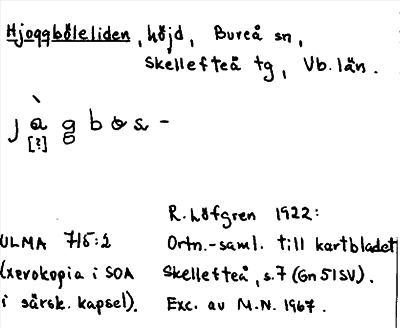 Hjoggböleliden, höjd, Bureå sn,
Skellefteå tg, Vb. län.
jàgbɷs-
[?]
R. Löfgren 1922:
ULMA 715:2 Ortn.-saml. till kartbladet
(xerokopia i SOA Skellefteå, s.7 (Gn 51SV).
i särsk. kapsel). Exc. av M.N. 1967.